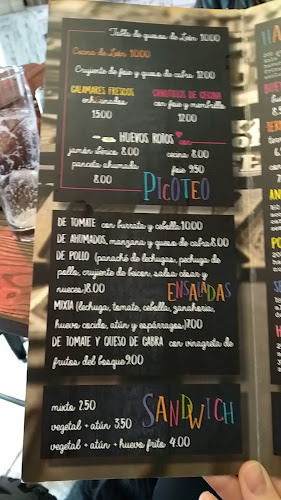 Tabla de quesos de León 10.00
Cecina de León 10.00
Crujiente de foie y queso de cabra 12.00
CALAMARES FRESCOS
enharinados
15.00
CANUTILLOS DE CECINA
con foie y membrillo
12.00
HUEVOS ROTOS con
jamón ibérico 8.00
panceta ahumada
8.00
cecina 8.00
foie 9.50
PICOTEO
DE TOMATE con burrata y cebolla 10.00
DE AHUMADOS, manzana y queso de cabra 8.00
DE POLLO (panaché de lechugas, pechuga de
pollo, crujiente de bacon, salsa césar y
nueces) 8.00
ENSALADAS
MIXTA (lechuga, tomate, cebolla, zanahoria,
huevo cocido, atún y espárragos) 7.00
DE TOMATE Y QUESO DE CABRA con vinagreta de
frutos del bosque 9.00
SANDWICH
mixto 2.50
vegetal + atún 3.50
vegetal + atún + huevo frito 4.00